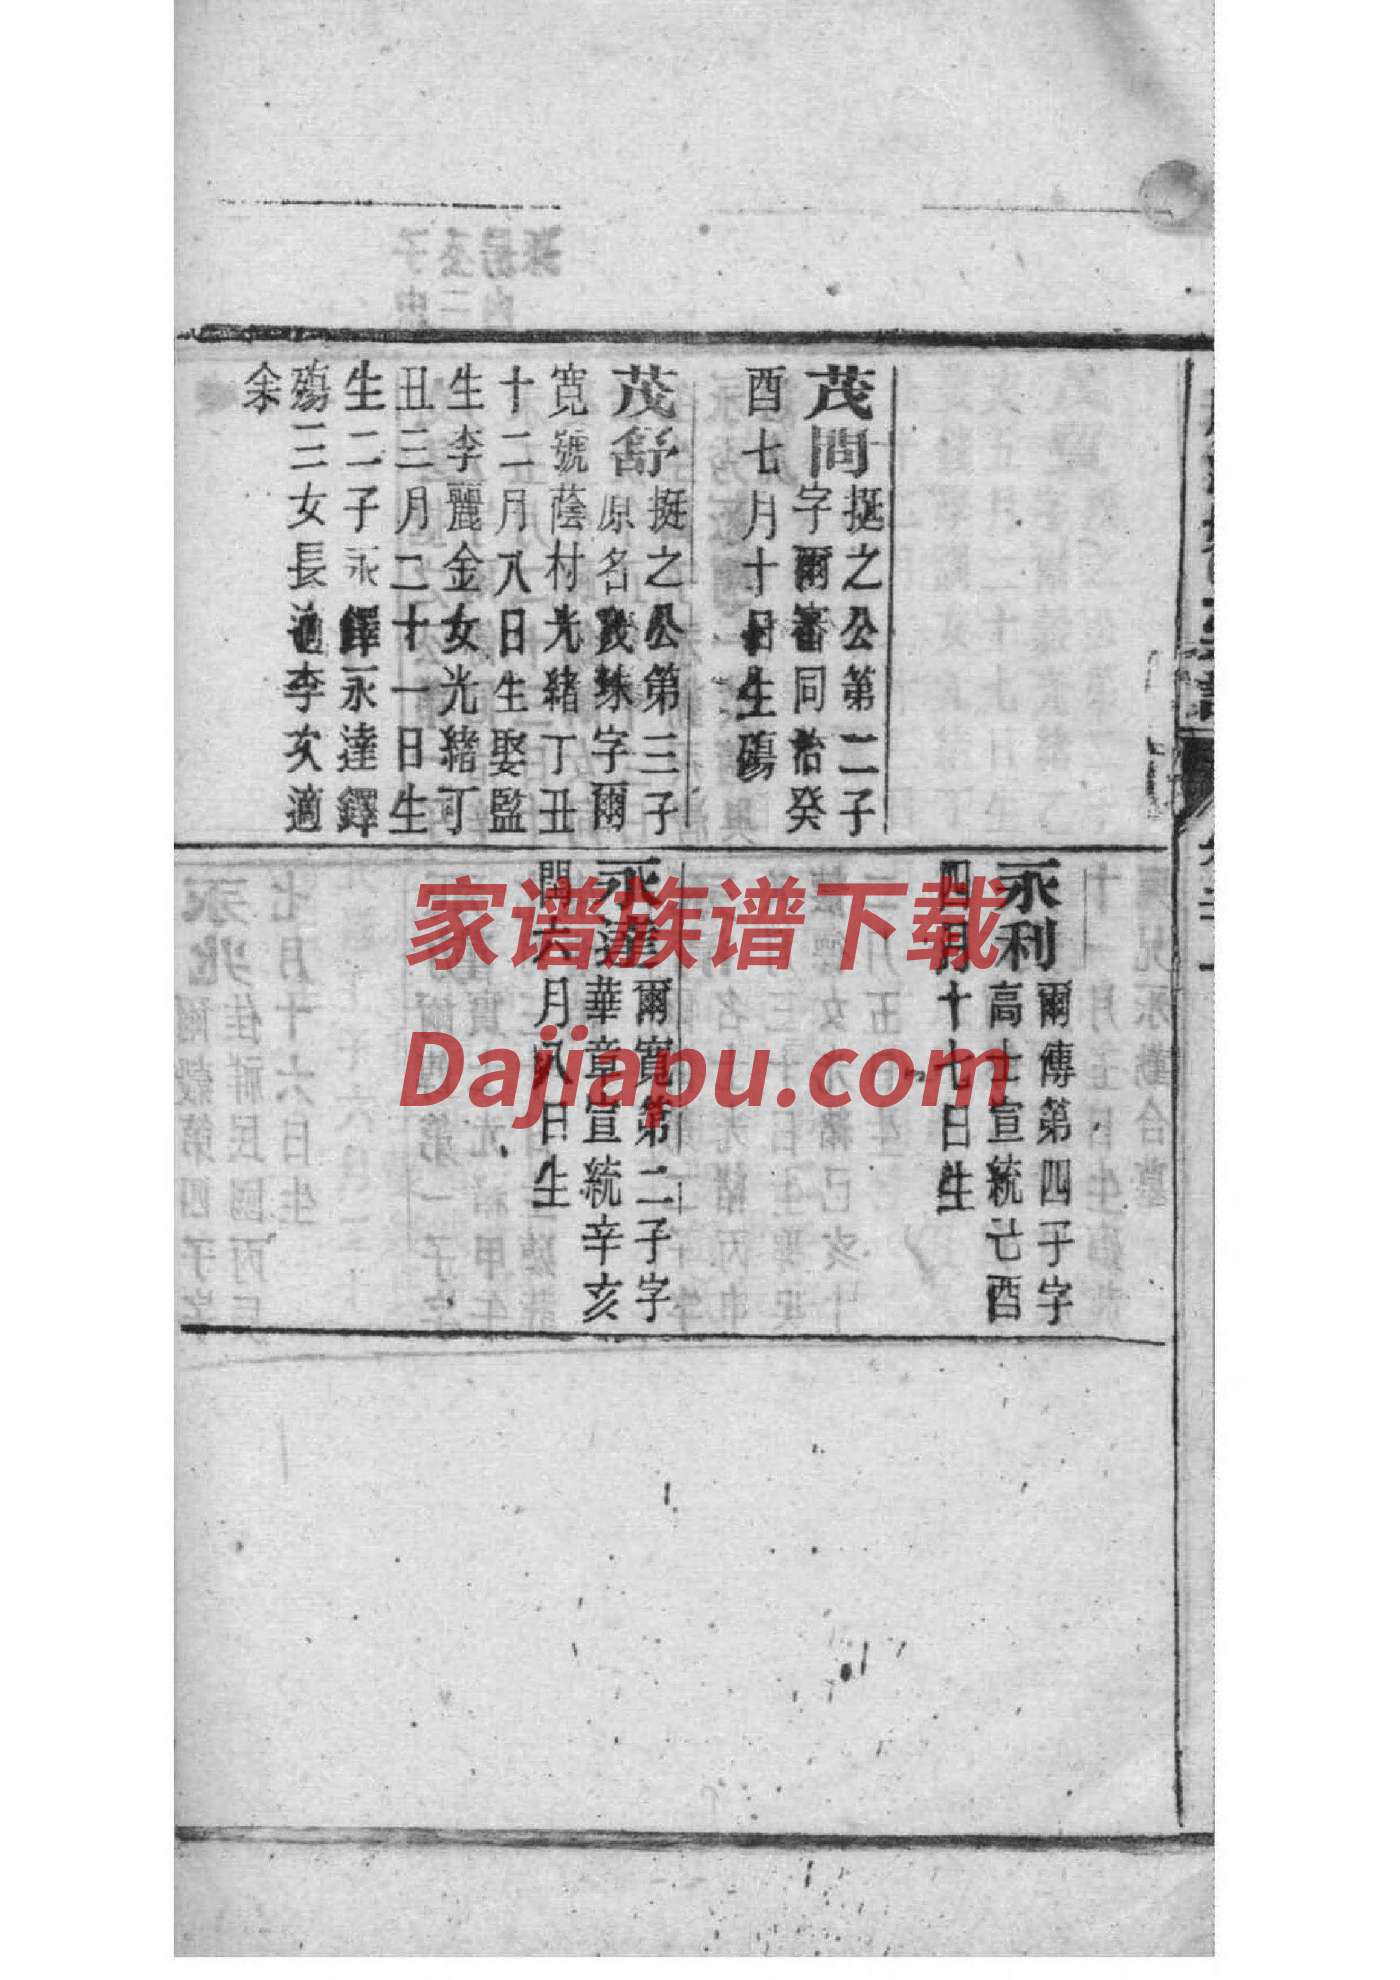 茂問挺之公第二子
字爾審同治癸
酉七月十日生殤
茂舒挺之公第三子
原名字爾
寬號蔭村光緒丁丑
十二月八日生娶監
生李麗金女光緒丁
丑三月二十一日生
生二子永鐸永達鐸
殤三女長適李次適
余
永利爾傳第四子字
高士宣統己酉
四月十七日生
永達爾寬第二子字
華章宣統辛亥
閏六月八日生
家谱族谱下载
Dajiapu.com